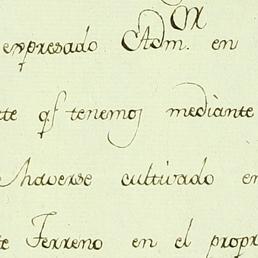 expresado Adm.<sup>or</sup> en
te qͤ tenemos mediante
haverse cultivado en
te Terreno en el propr